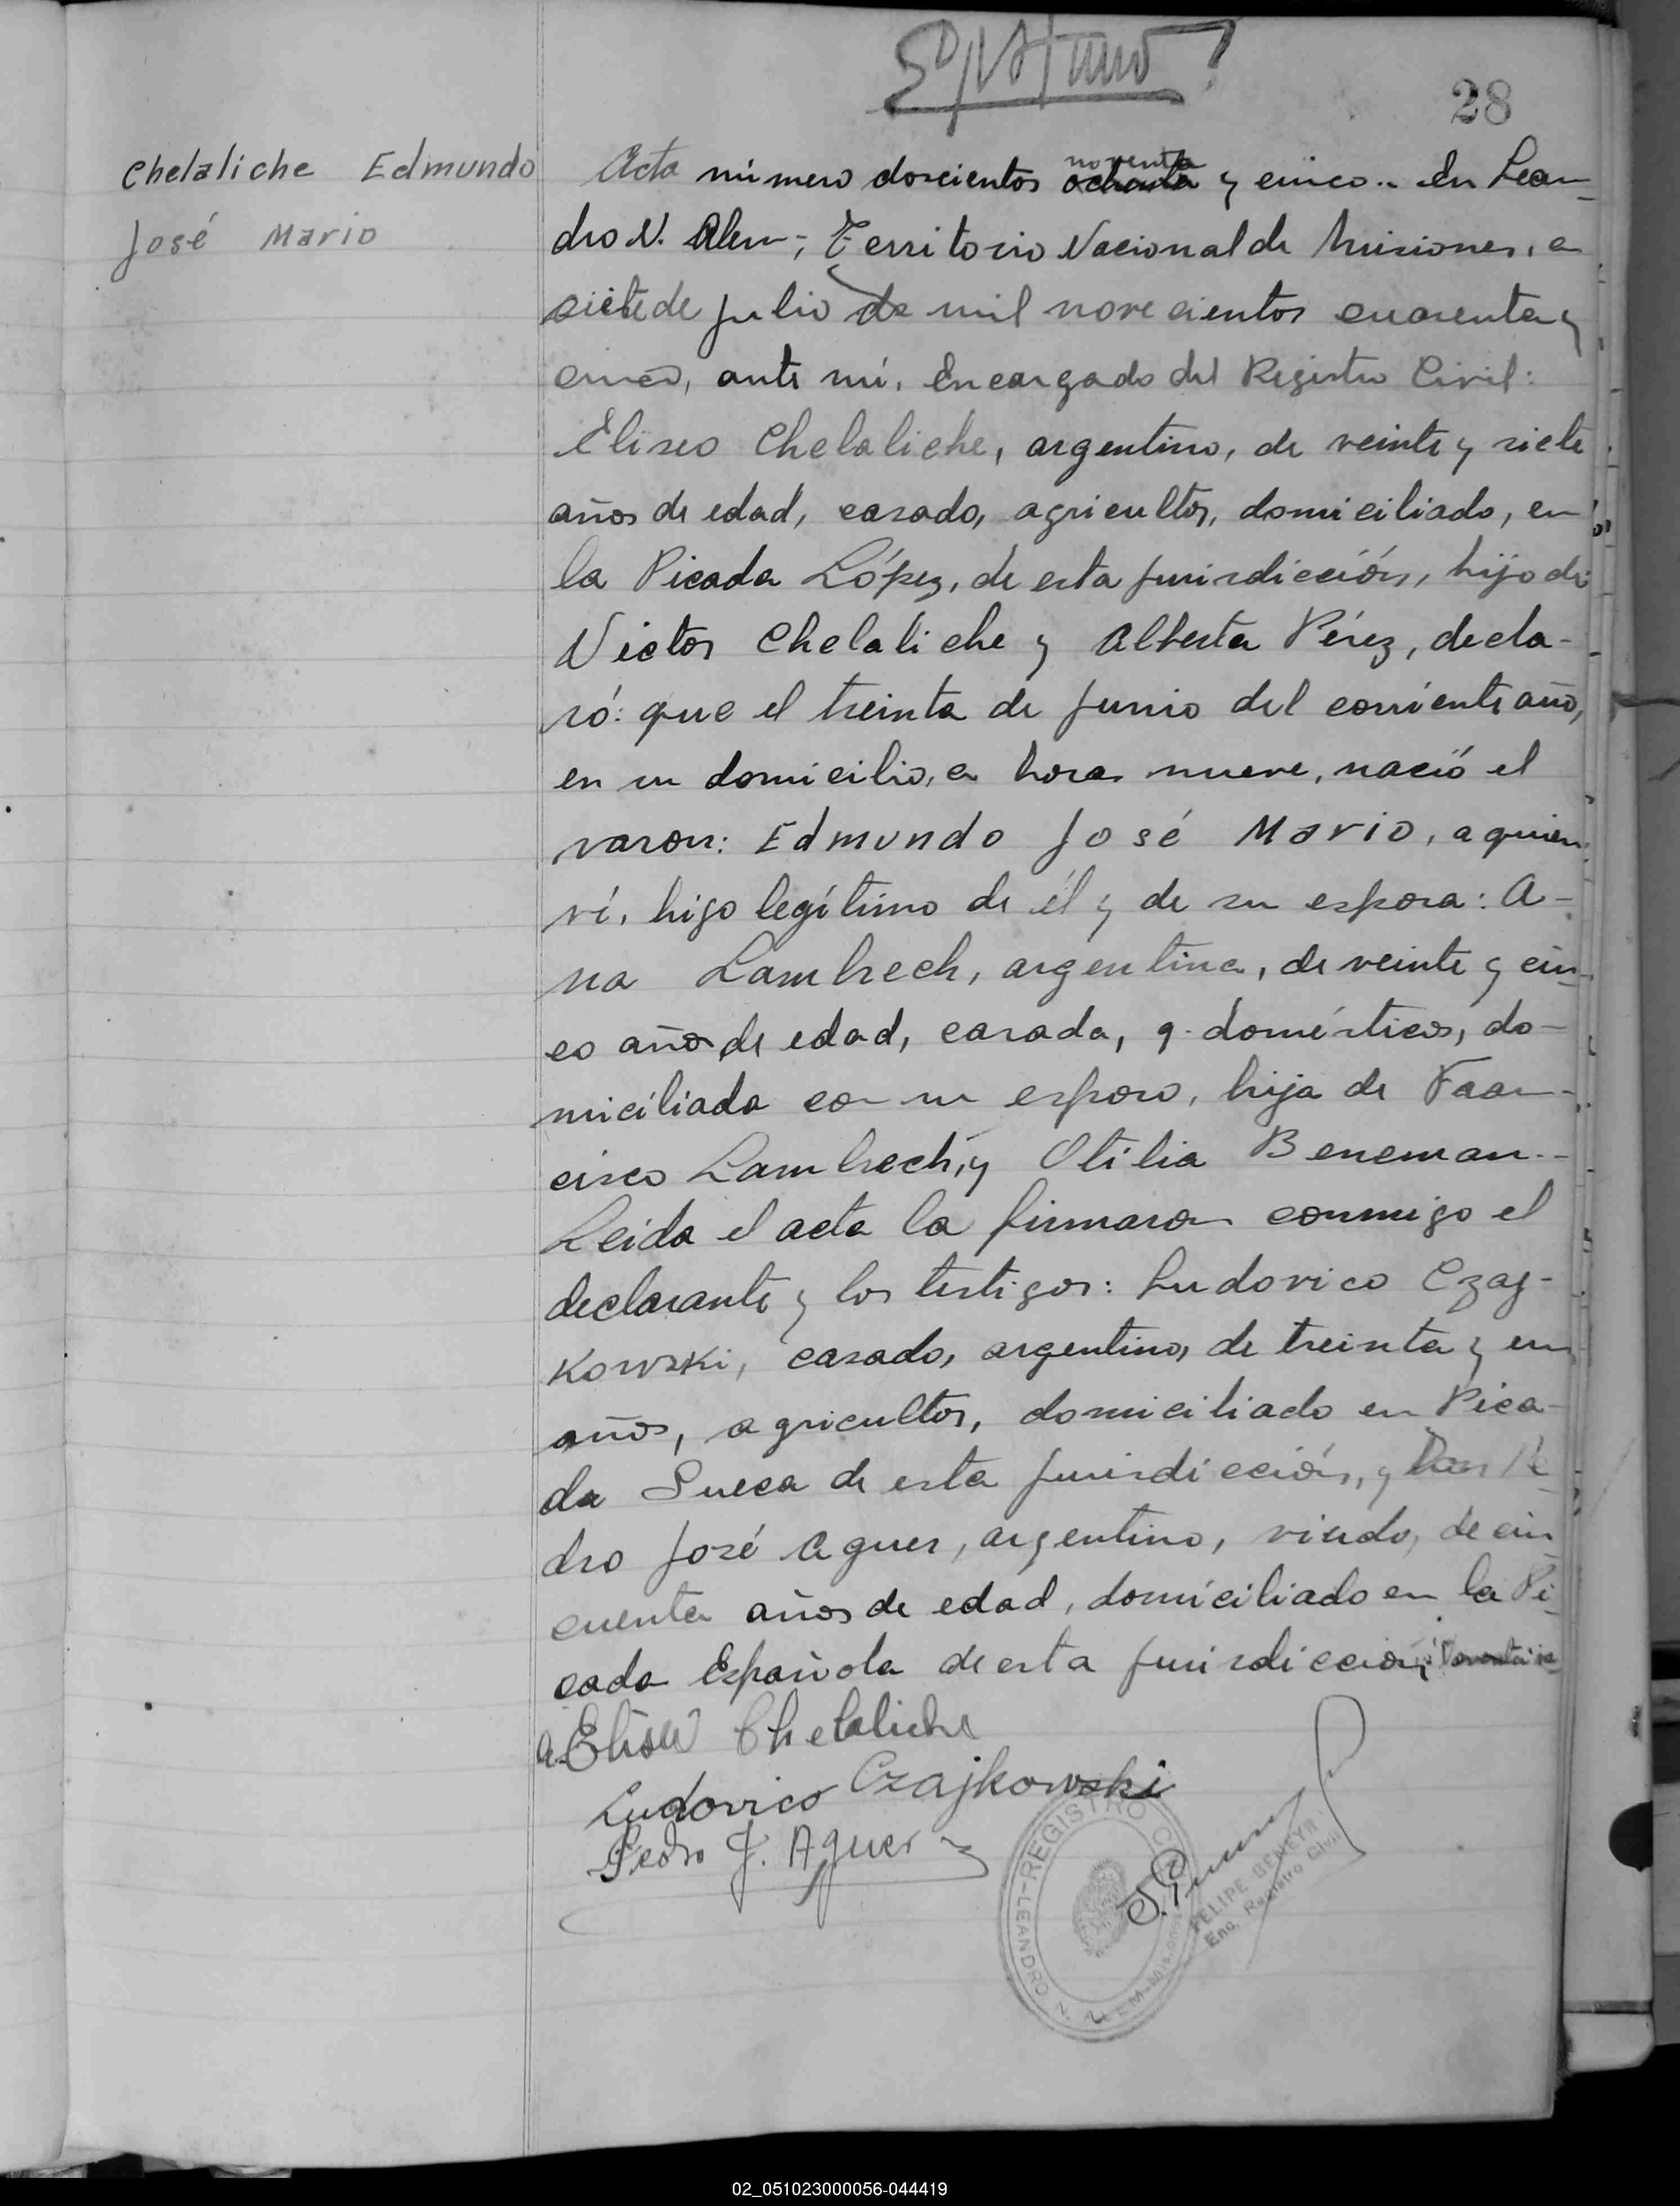 28
Chelaliche Edmundo
José Mario
Acta número doscientos noventa ochenta y cinco.. En Lean-
dro N. Alem-, Territorio Nacional de Misiones, a
siete de julio de mil novecientos cuarenta y
cinco, ante mí, Encargado del Registro Civil:
Eliseo Chelaliche, argentino, de veinte y siete
años de edad, casado, agricultor, domiciliado, en
la Picada López, de esta jurisdicción, hijo de
Victor Chelaliche y Alberta Pérez, decla-
ró: que el treinta de junio del corriente año,
en su domicilio, a hora nueve, nació el
varon: Edmundo José Mario, a quien
ví, hijo legítimo de él y de su esposa: A-
na Lambrech, argentina, de veinte y cin-
co años de edad, casada, q. domésticos, do-
miciliada con su esposo, hija de Fran-
cisco Lambrech, y Otilia Beneman.-
Leida el acta la firmaron conmigo el
declarante y los testigos: Ludovico Czaj-
kowski, casado, argentino, de treinta y un
años, agricultor, domiciliado en Pica-
da Sueca de esta jurisdicción, y Don Pe-
dro José Aguer, argentino, viudo, de cin-
cuenta años de edad, domiciliado en la Pi-
cada Española de esta jurisdicción,
Eliseo Chelaliche
Ludovico Czajkowski
Pedro J. Aguer
REGISTRO CIVIL
LEANDRO N. ALEM-Misiones
FELIPE BENEYR
Enc. Registro Civil
02_051023000056-044419